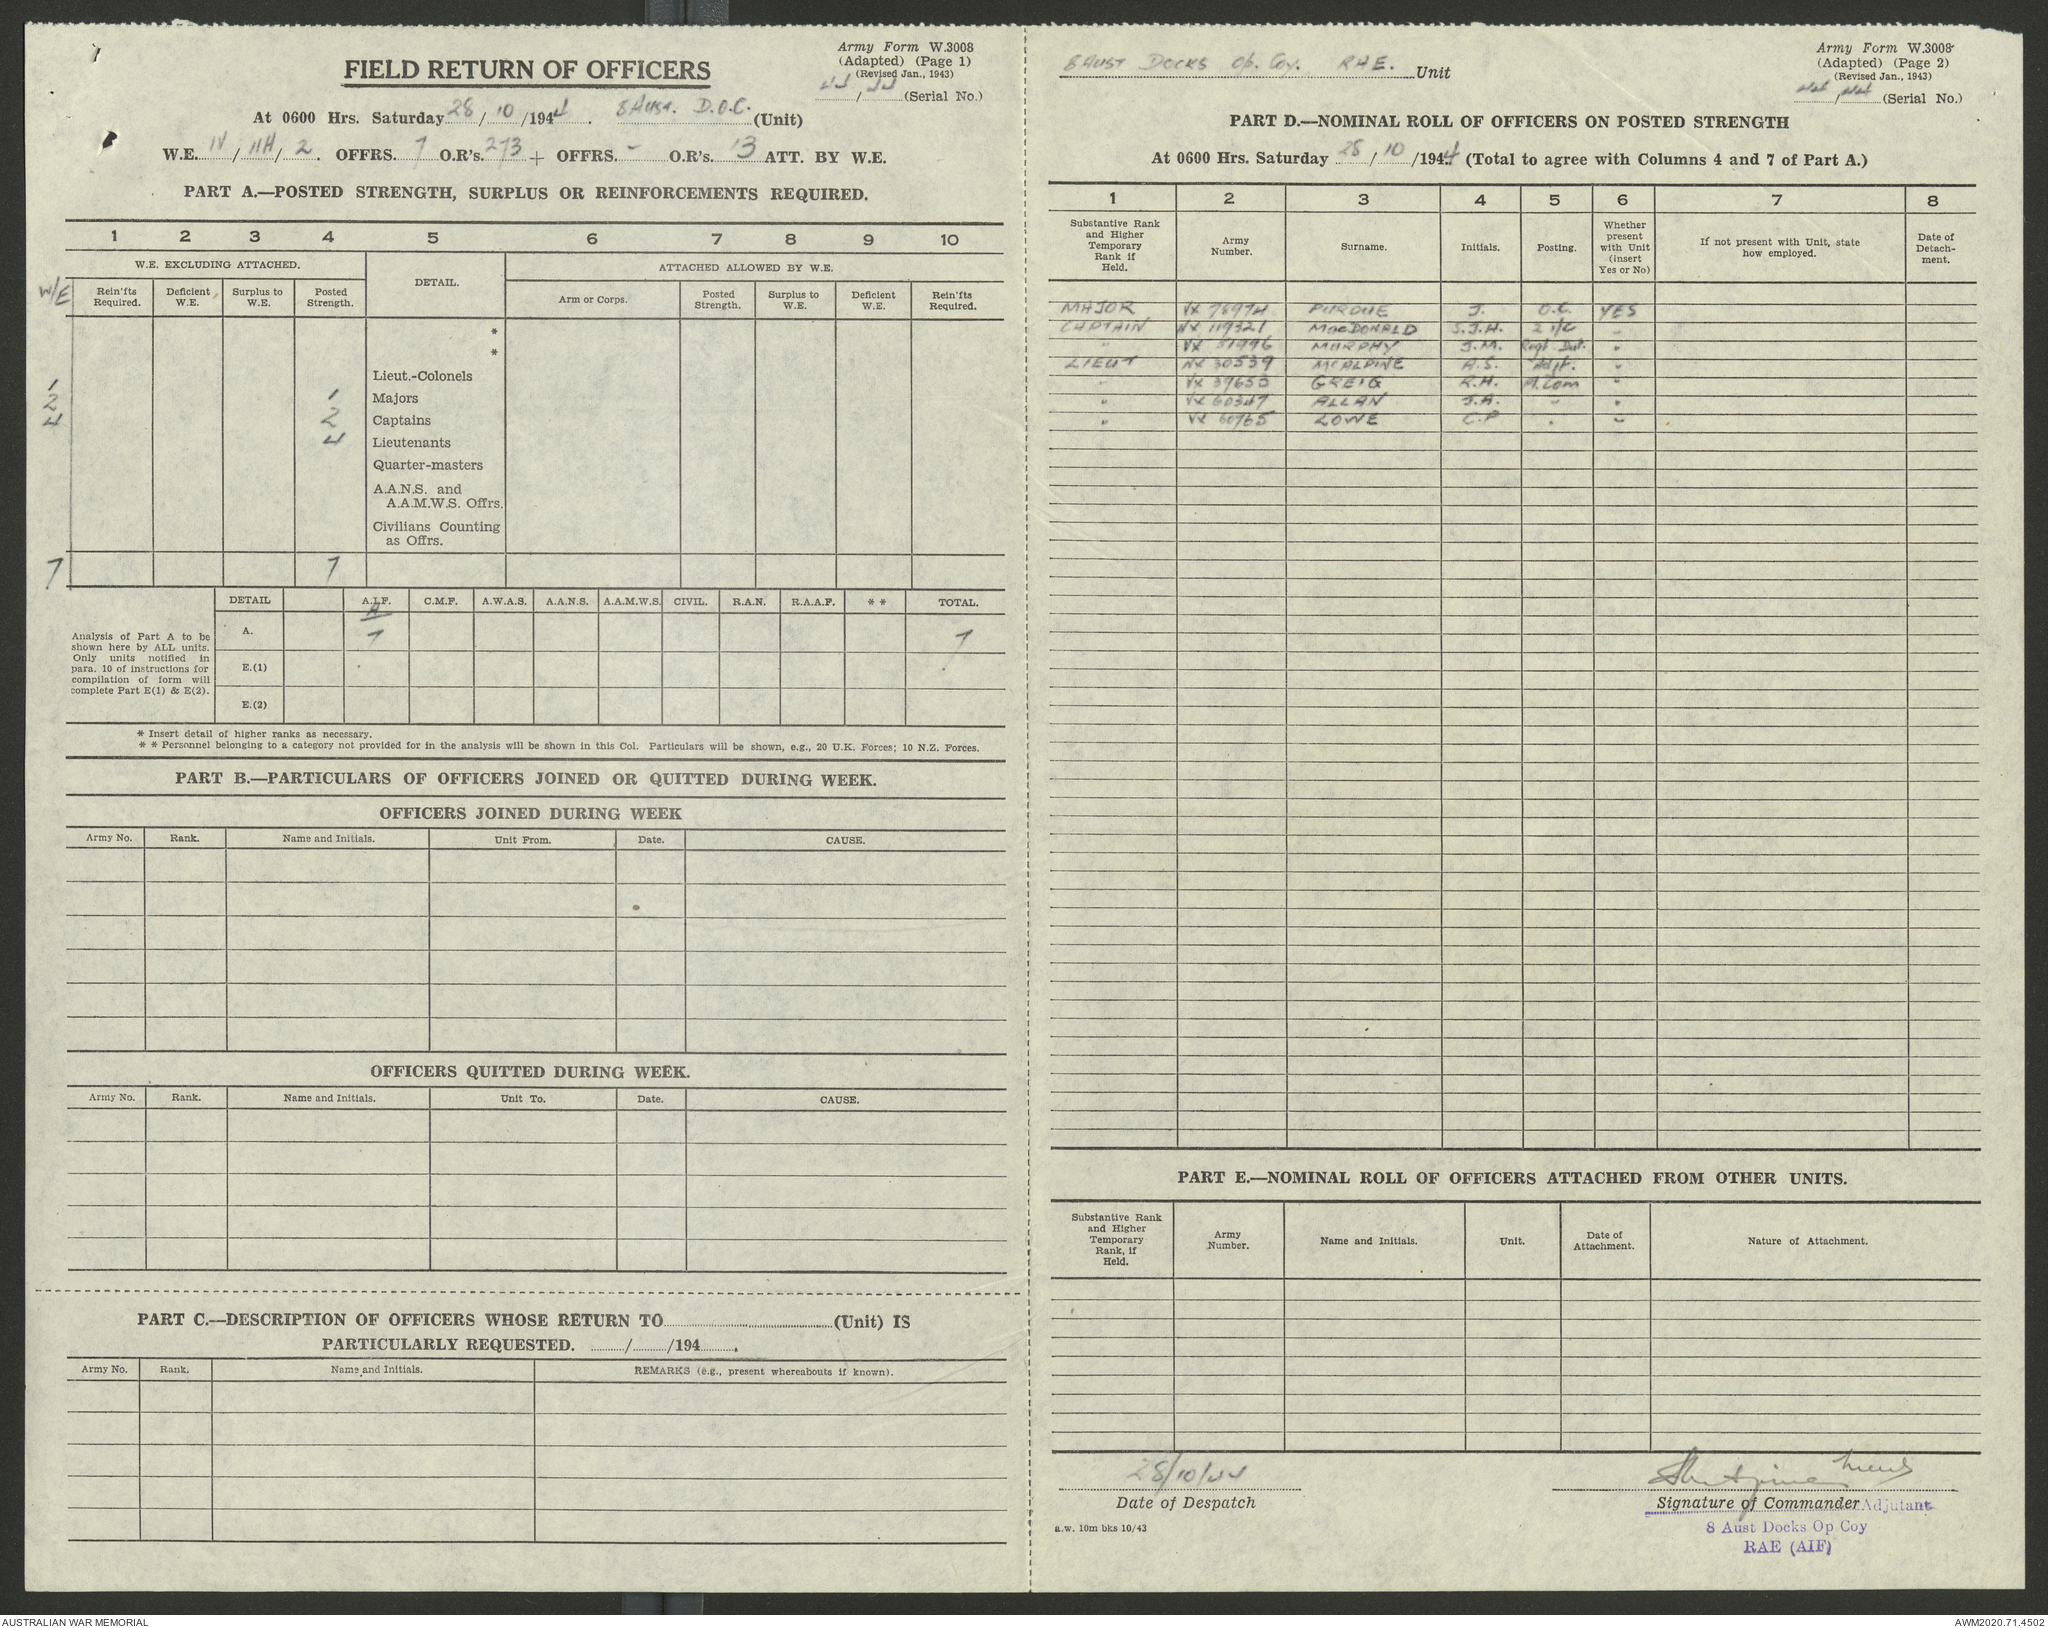 Army Form W.3008
(Adapted) (Page 1)
(Revised Jan., 1943)
44/44 (Serial No.)
FIELD RETURN OF OFFICERS
At 0600 Hrs. Saturday 28/10/1944. 8 Aust. D.O.C. (Unit)
W.E. IV/11H/2. OFFRS. 7 O.R's. 273 + OFFRS. - O.R's. 13 ATT. BY W.E.
PART A.—POSTED STRENGTH, SURPLUS OR REINFORCEMENTS REQUIRED.
1 2 3 4 5 6 7 8 9 10
W.E. EXCLUDING ATTACHED. DETAIL. ATTACHED ALLOWED BY W.E.
W/E Rein'fts Required. Deficient W.E. Surplus to W.E. Posted Strength. Arm or Corps. Posted Strength. Surplus to W.E. Deficient W.E. Rein'fts Required.
*
*
Lieut.-Colonels
1 1 Majors
2 2 Captains
4 4 Lieutenants
Quarter-masters
A.A.N.S. and
A.A.M.W.S. Offrs.
Civilians Counting
as Offrs.
7 7
DETAIL A.I.F. C.M.F. A.W.A.S. A.A.N.S. A.A.M.W.S. CIVIL. R.A.N. R.A.A.F. * * TOTAL.
A. 7 7
E.(1)
E.(2)
Analysis of Part A to be
shown here by ALL units.
Only units notified in
para. 10 of instructions for
compilation of form will
complete Part E(1) & E(2).
* Insert detail of higher ranks as necessary.
* * Personnel belonging to a category not provided for in the analysis will be shown in this Col. Particulars will be shown, e.g., 20 U.K. Forces; 10 N.Z. Forces.
PART B.—PARTICULARS OF OFFICERS JOINED OR QUITTED DURING WEEK.
OFFICERS JOINED DURING WEEK
Army No. Rank. Name and Initials. Unit From. Date. CAUSE.
OFFICERS QUITTED DURING WEEK.
Army No. Rank. Name and Initials. Unit To. Date. CAUSE.
PART C.—DESCRIPTION OF OFFICERS WHOSE RETURN TO (Unit) IS
PARTICULARLY REQUESTED. / /194 .
Army No. Rank. Name and Initials. REMARKS (e.g., present whereabouts if known).
8 AUST DOCKS Op. Coy. RAE. Unit
Army Form W.3008
(Adapted) (Page 2)
(Revised Jan., 1943)
44/44 (Serial No.)
PART D.—NOMINAL ROLL OF OFFICERS ON POSTED STRENGTH
At 0600 Hrs. Saturday 28/10/1944 (Total to agree with Columns 4 and 7 of Part A.)
1 2 3 4 5 6 7 8
Substantive Rank and Higher Temporary Rank if Held. Army Number. Surname. Initials. Posting. Whether present with Unit (insert Yes or No) If not present with Unit, state how employed. Date of Detach-ment.
MAJOR VX 78974 PURDUE J. O.C. YES
CAPTAIN NX 119321 MacDONALD S.J.H. 2 i/c "
" VX 51996 MURPHY J.M. Regt. Dut. "
LIEUT NX 30539 McALPINE A.S. Adjt. "
" VX 39653 GREIG R.H. Pl. Com "
" VX 60347 ALLAN J.A. " "
" VX 60765 LOWE C.P " "
PART E.—NOMINAL ROLL OF OFFICERS ATTACHED FROM OTHER UNITS.
Substantive Rank and Higher Temporary Rank, if Held. Army Number. Name and Initials. Unit. Date of Attachment. Nature of Attachment.
28/10/44
Date of Despatch
Signature of Commander Adjutant
8 Aust Docks Op Coy
RAE (AIF)
a.w. 10m bks 10/43
AUSTRALIAN WAR MEMORIAL AWM2020.71.4502